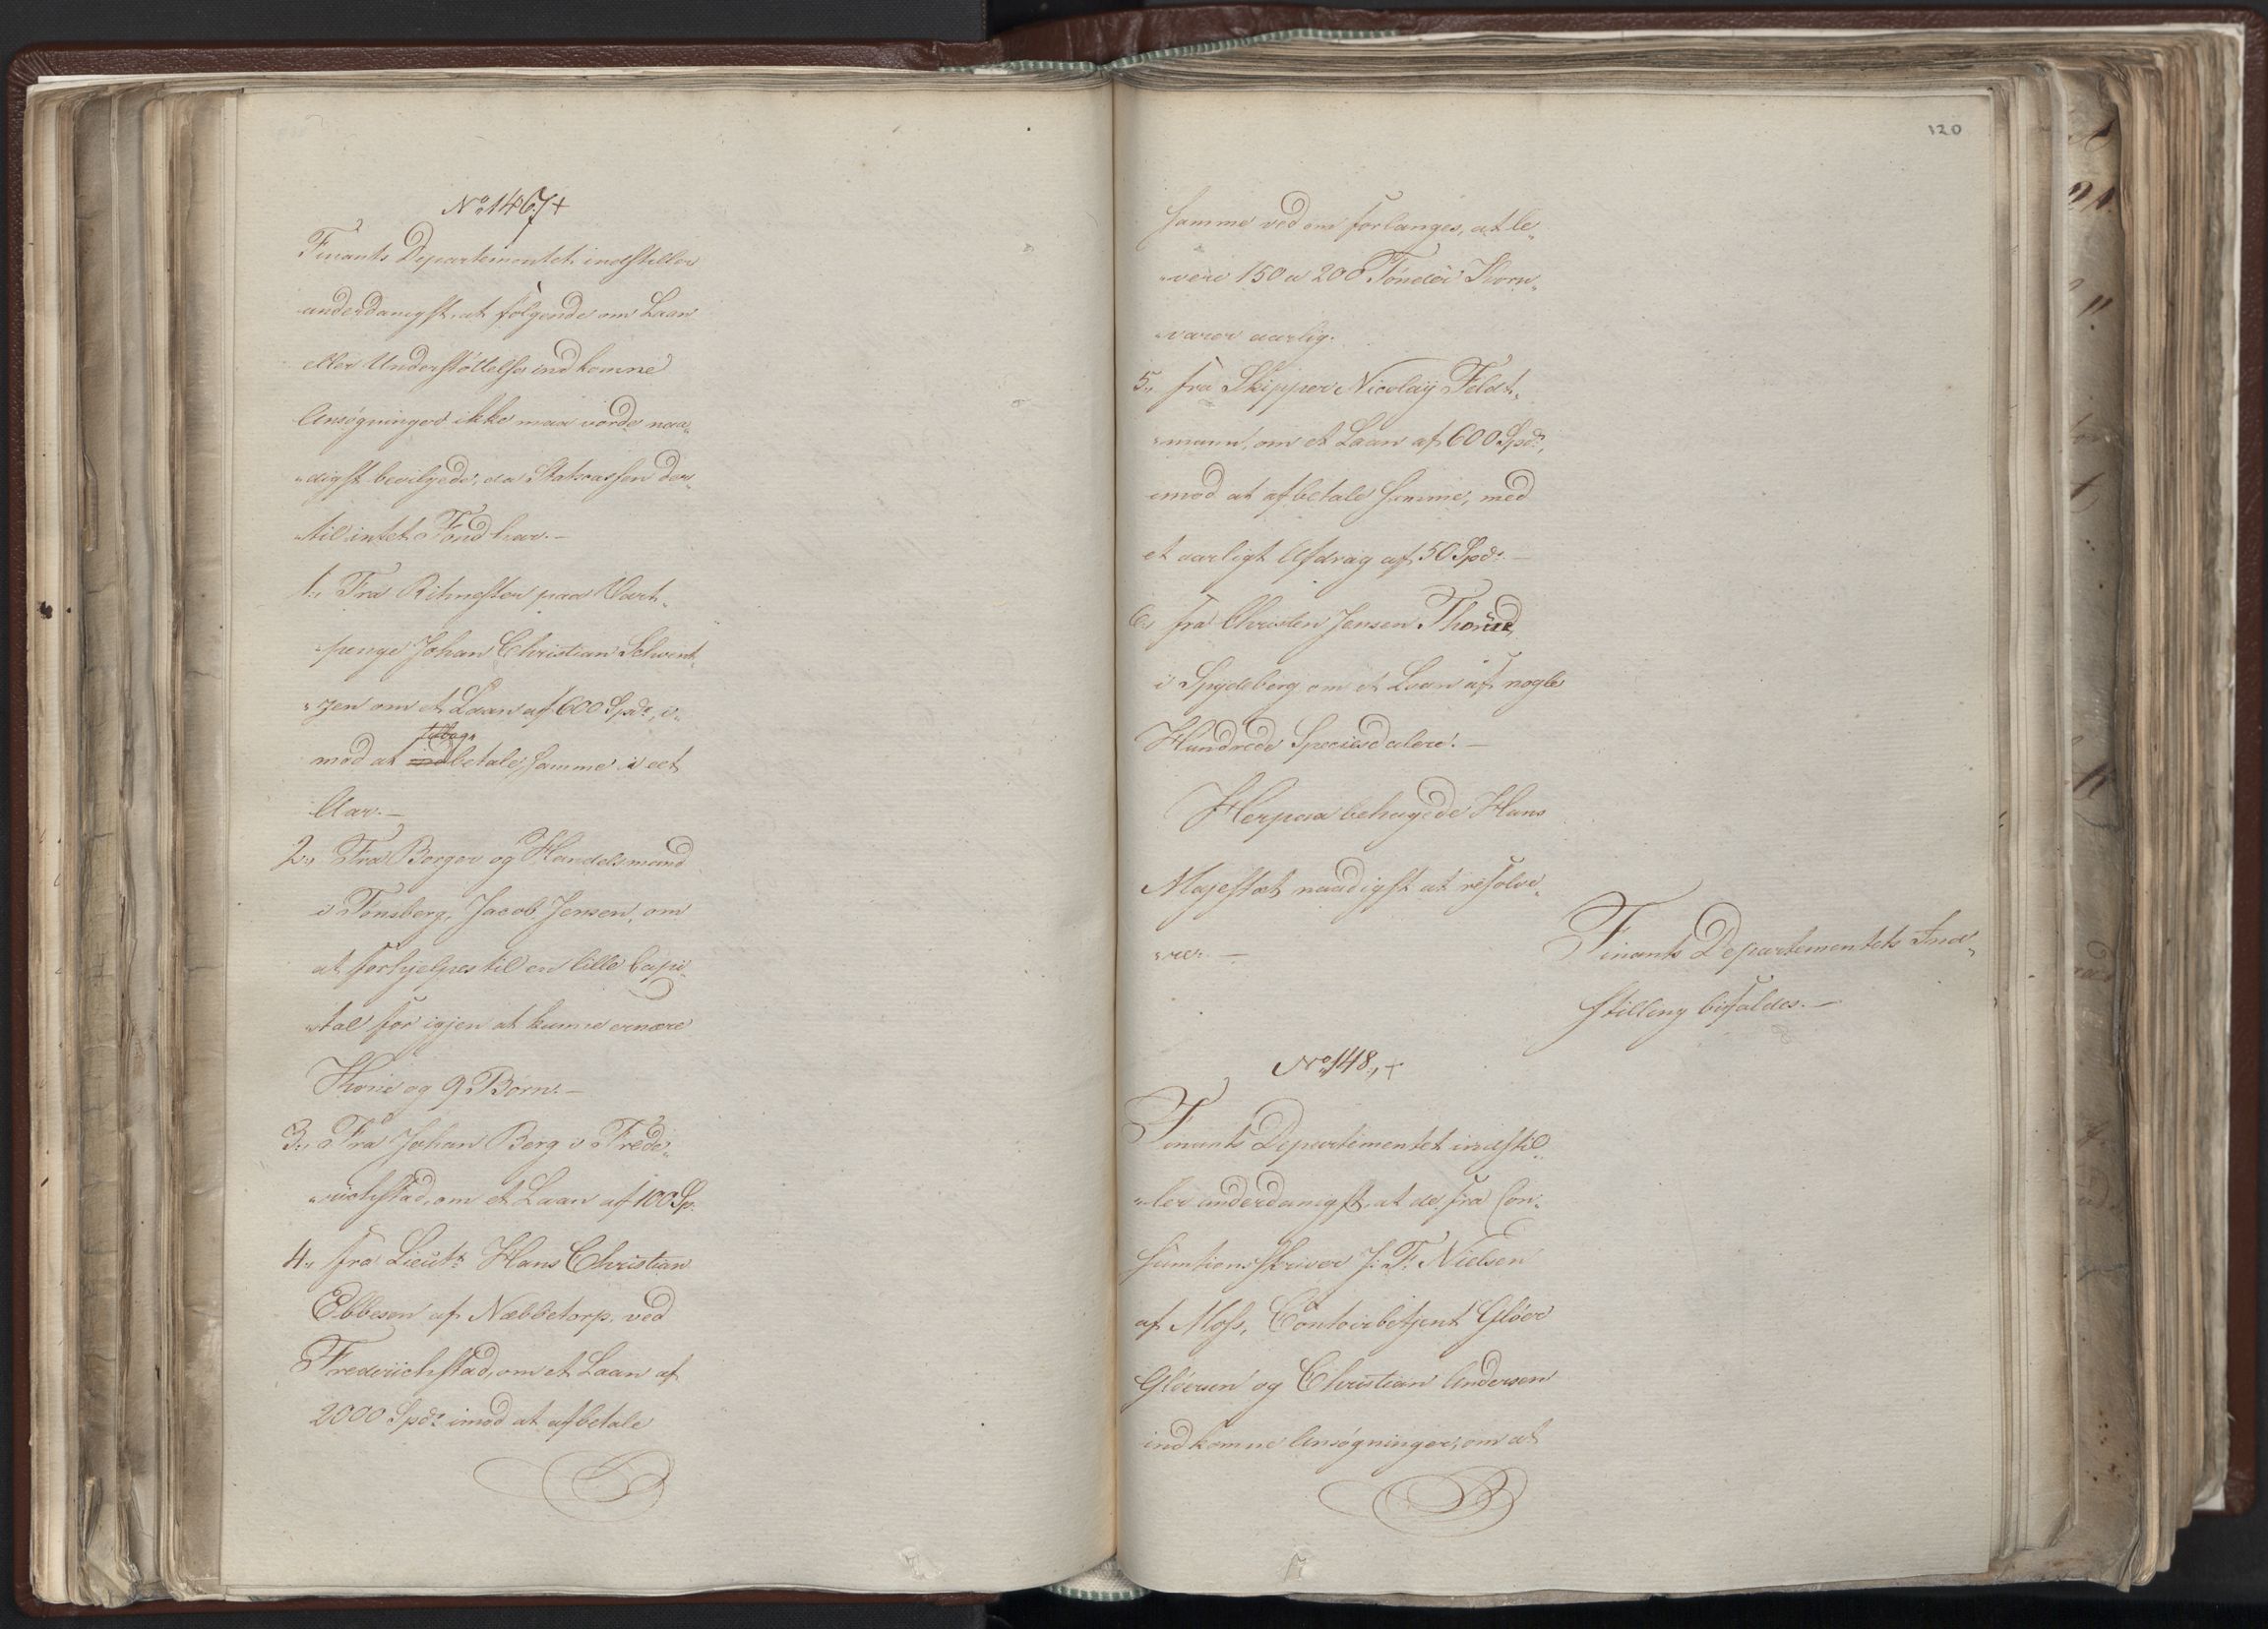 No 147 +
Finants Departementet indstiller
underdanigst, at følgende om Laan
eller Understøttelse ind komne
Ansøgninger ikke maa vorde naa„
„digst bevilgede, da Statscassen der„
„til intet Fond har. —
1., Fra Ritmester paa Vart„
„penge Johan Christian Schwent„
„zen om et Laan af 600 Spd:, i„
tilbage
mod at betale samme i eet
Aar. —
2., Fra Borger og Handelsmand
i Tønsberg, Jacob Jensen, om
at forhjelpes til en lille Capi„
„tal for igjen at kunne ernære
Kone og 9 Børn. —
3., Fra Johan Berg i Frede„
„richstad, om et Laan af 100 Sp.
4., fra Lieutn: Hans Christian
Ebbesen af Næbbetorp, ved
Frederichstad, om et Laan af
2000 Spd: imod at afbetale
120
samme ved om forlanges, at le„
„vere 150 a 200 Tønder Korn„
„varer aarlig.
5., fra Skipper Nicolay Feldt„
„mann, om et Laan af 600 Spd:,
imod at afbetale samme, med
et aarligt Afdrag af 50 Spd: —
6., fra Christen Jensen Thorud,
i Spydeberg om et Laan af nogle
Hundrede Speciesdalere. —
Herpaa behagede Hans
Majestæt naadigst at resolve„
„re. —
Finants Departementets Ind„
stilling bifaldes. —
No 148., +
Finants Departementet indstil„
„ler underdanigst, at de fra Con„
sumtionsskriver J. F. Nielsen
af Moss, Contoirbetjent Gløer
Gløersen og Christian Andersen
indkomne Ansøgninger, om at